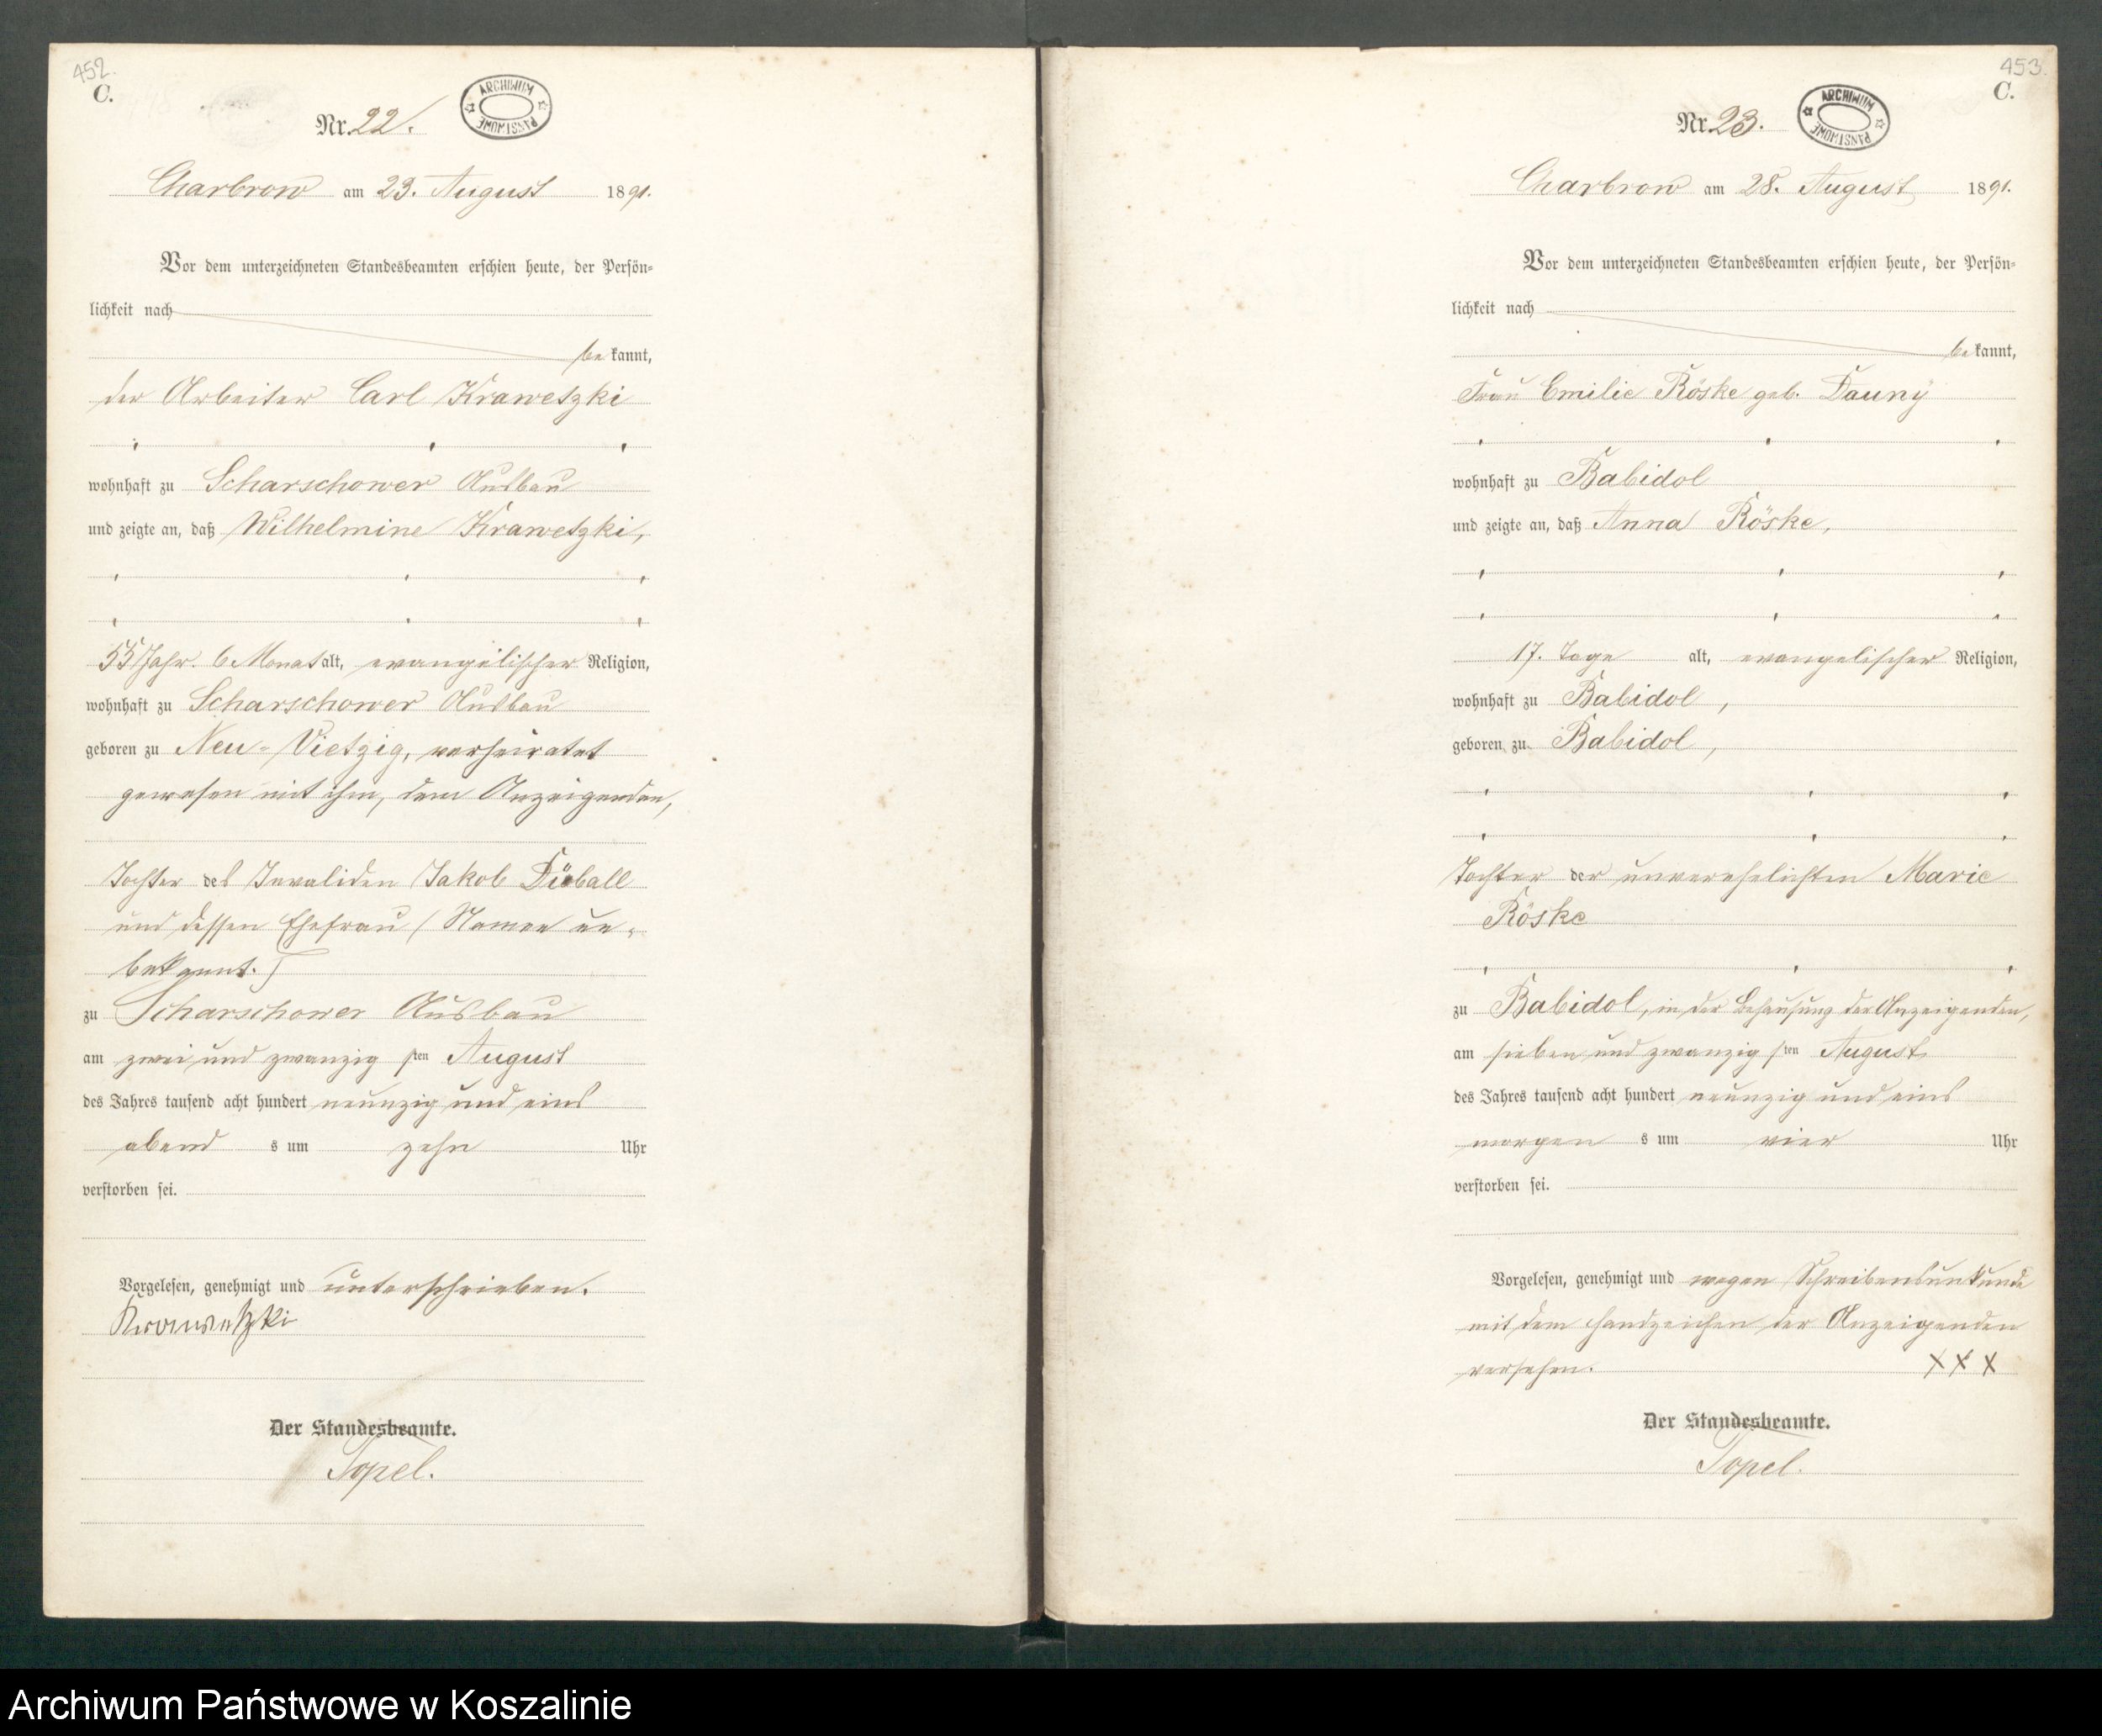 452.
C.
Nr. 22.
ARCHIWUM PAŃSTWOWE
Charbrow am 23. August 1891.
Vor dem unterzeichneten Standesbeamten erschien heute, der Persön-
lichkeit nach
be kannt,
der Arbeiter Carl Krawetzki
wohnhaft zu Scharschower Ausbau
und zeigte an, daß Wilhelmine Krawetzki,
55 Jahr 6 Monat alt, evangelischer Religion,
wohnhaft zu Scharschower Ausbau
geboren zu Neu-Vietzig, verheiratet
gewesen mit ihm, dem Anzeigenden,
Tochter des Invaliden Jakob
und dessen Ehefrau (Namen un-
bekannt.)
zu Scharschower Ausbau
am zwei und zwanzig sten August
des Jahres tausend acht hundert neunzig und eins
abend s um zehn Uhr
verstorben sei.
Vorgelesen, genehmigt und unterschrieben.
Krawetzki
Der Standesbeamte.
Topel.
453.
C.
Nr. 23.
ARCHIWUM PAŃSTWOWE
Charbrow am 28. August 1891.
Vor dem unterzeichneten Standesbeamten erschien heute, der Persön-
lichkeit nach
be kannt,
Frau Emilie Röske geb. Dauny
wohnhaft zu Babidol
und zeigte an, daß Anna Röske,
17. Tage alt, evangelischer Religion,
wohnhaft zu Babidol,
geboren zu Babidol,
Tochter der unverehelichten Marie
Röske
zu Babidol, in der Behausung der Anzeigenden,
am sieben und zwanzig sten August
des Jahres tausend acht hundert neunzig und eins
morgen s um vier Uhr
verstorben sei.
Vorgelesen, genehmigt und wegen Schreibensunkunde
mit dem Handzeichen der Anzeigenden
versehen. X X X
Der Standesbeamte.
Topel.
Archiwum Państwowe w Koszalinie